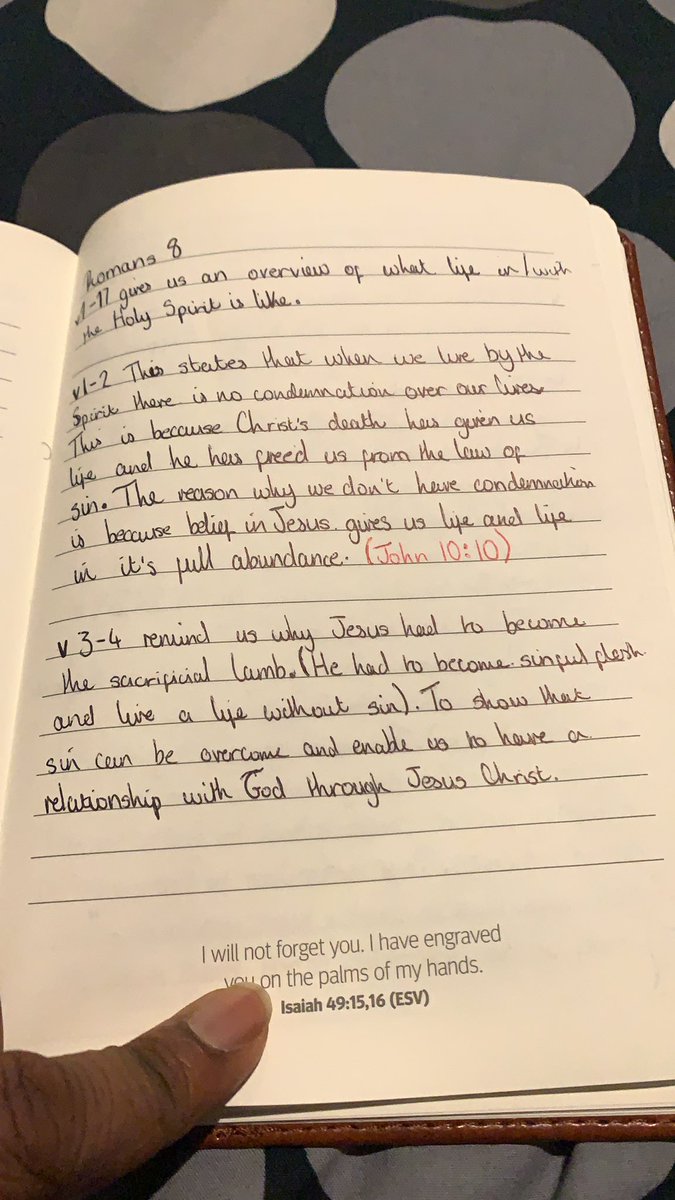 Romans 8
v1-17 gives us an overview of what life in/with
the Holy Spirit is like.
v1-2 This states that when we live by the
Spirit there is no condemnation over our lives
This is because Christ's death has given us
life and he has freed us from the law of
sin. The reason why we don't have condemnation
is because belief in Jesus gives us life and life
in it's full abundance. (John 10:10)
v 3-4 remind us why Jesus had to become
the sacrificial lamb. (He had to become sinful flesh
and live a life without sin). To show that
sin can be overcome and enable us to have a
relationship with God through Jesus Christ.
I will not forget you. I have engraved
you on the palms of my hands.
Isaiah 49:15,16 (ESV)